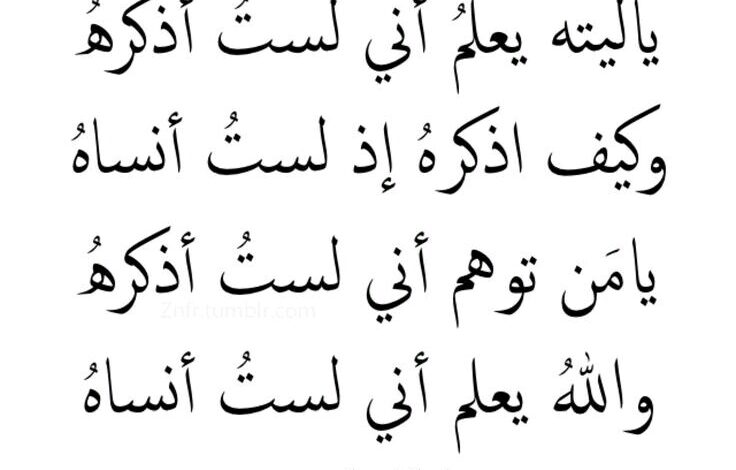 ياليته يعلمُ أني لستُ أذكرهُ
وكيف اذكرهُ إذ لستُ أنساهُ
يامَن توهم أني لستُ أذكرهُ
Znfr.tumblr.com
واللهُ يعلم أني لستُ أنساهُ